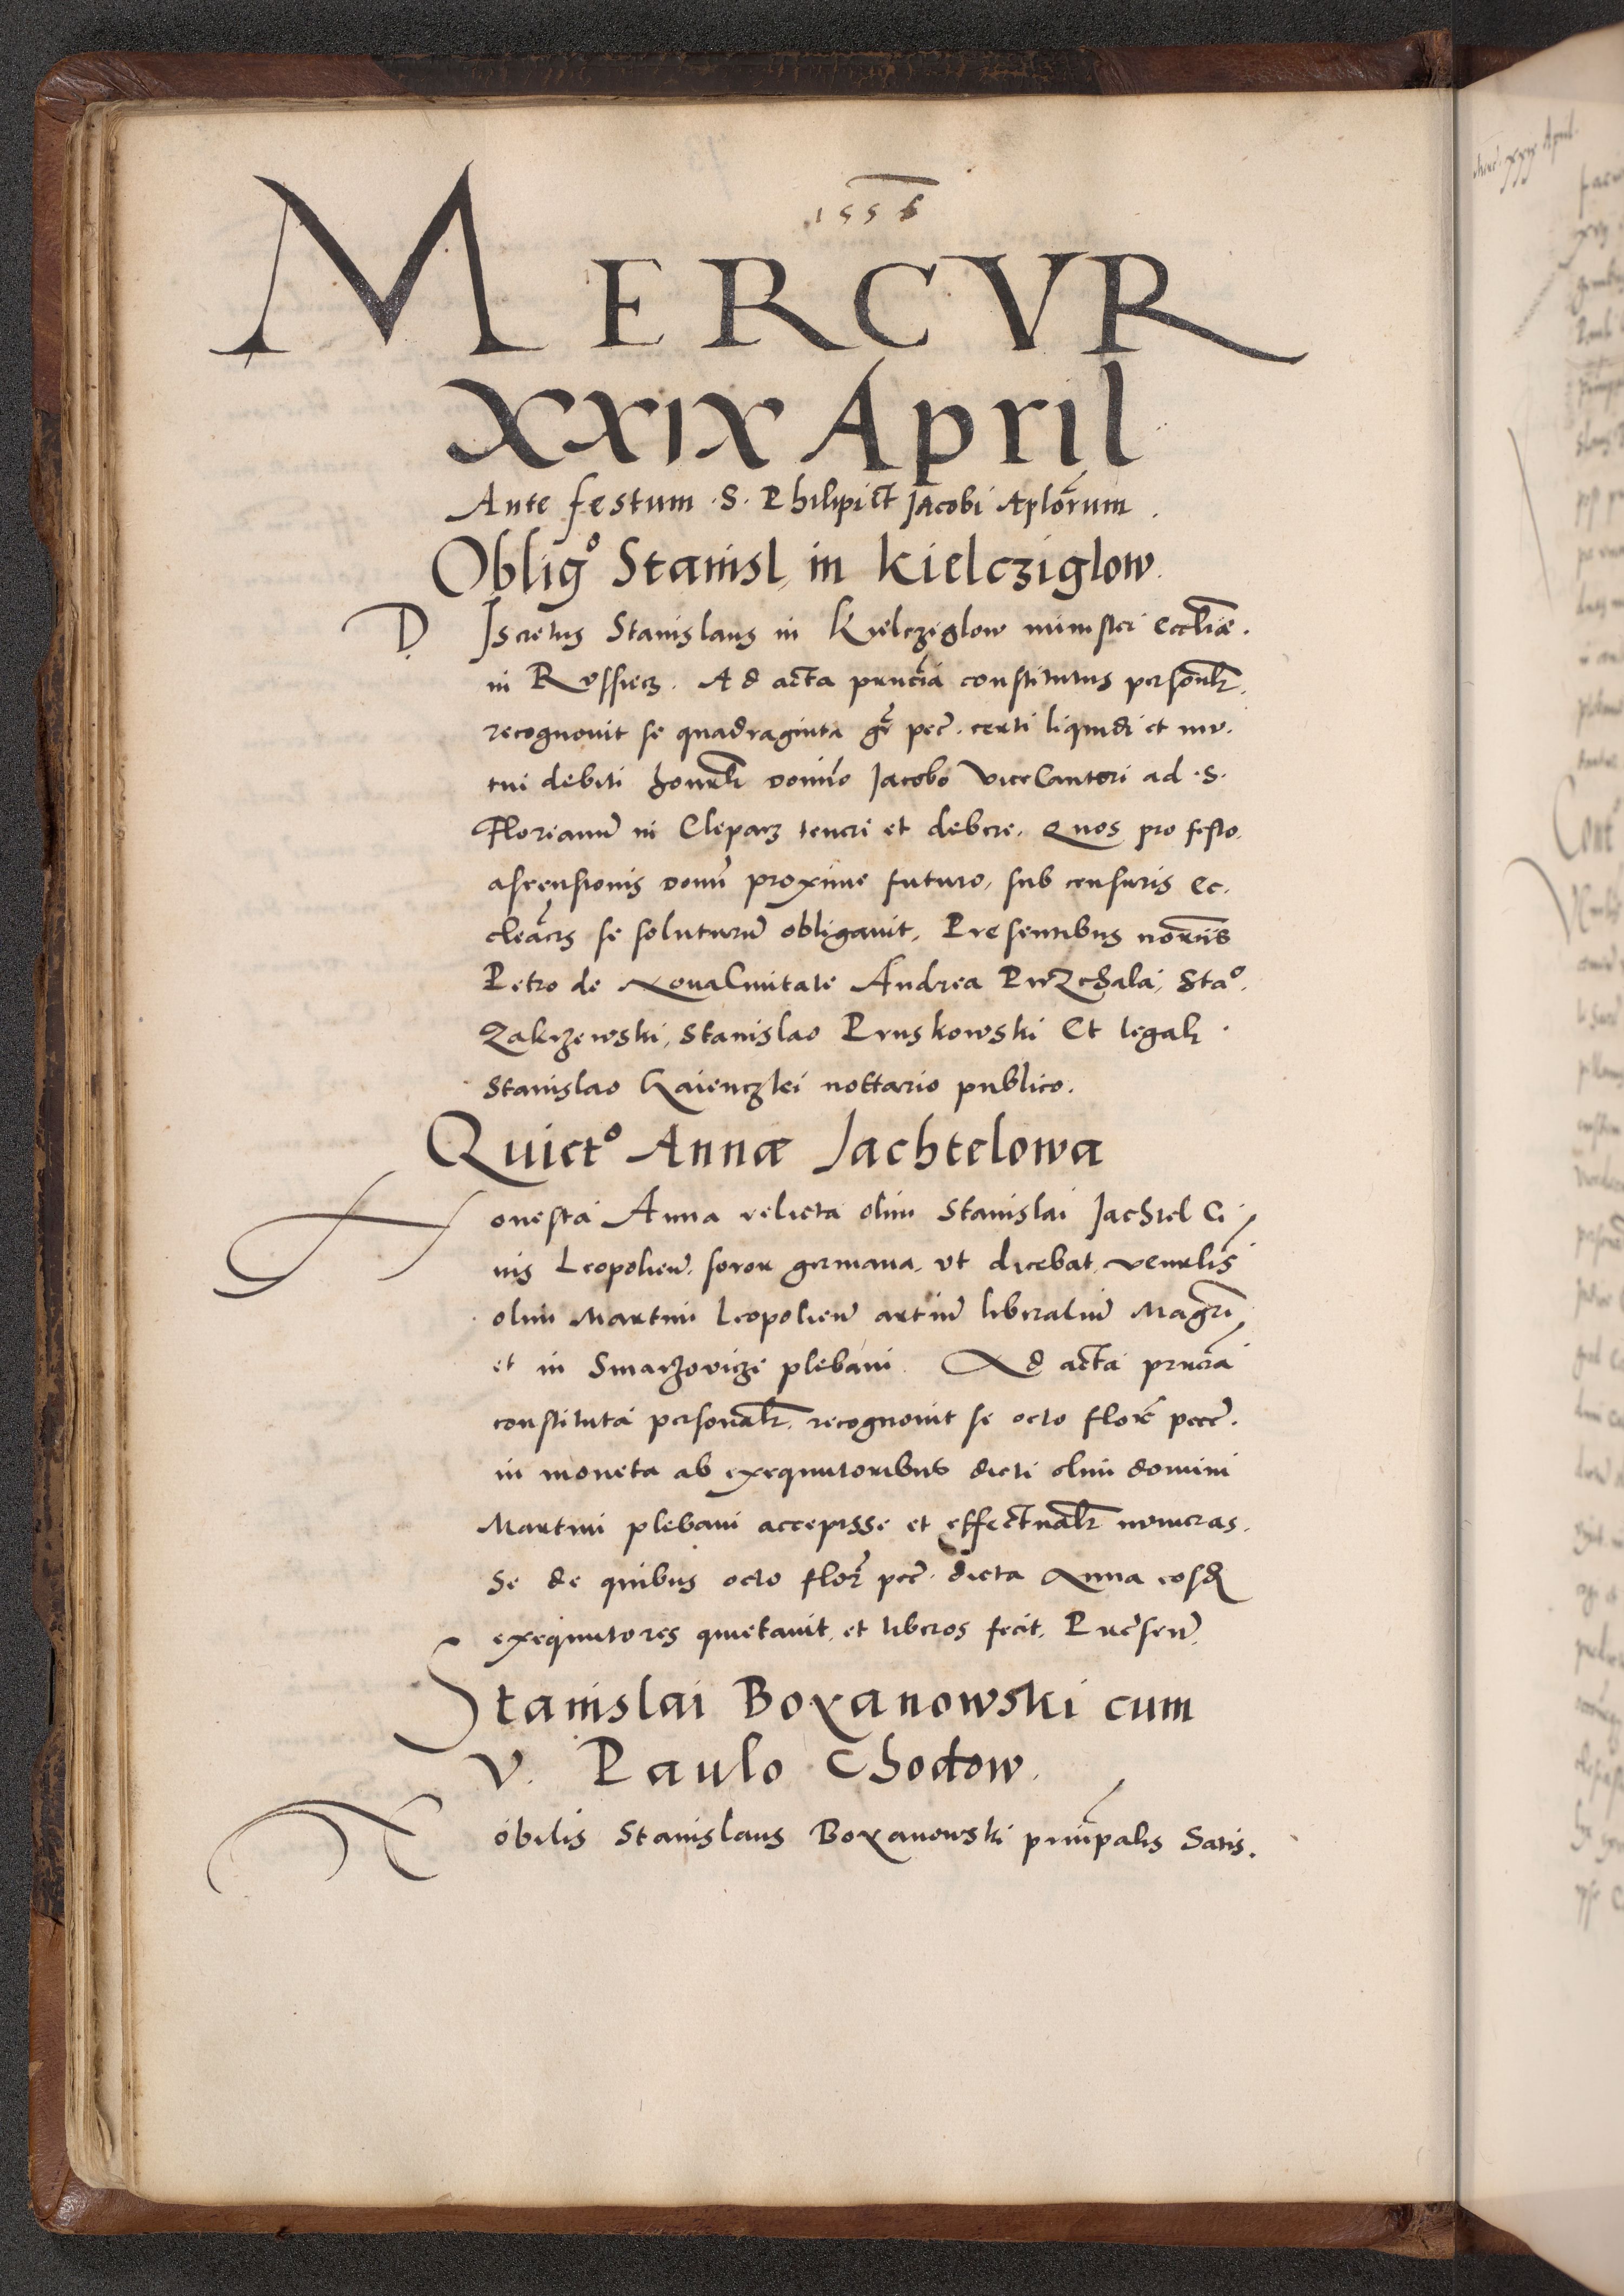 1556
MERCVR
XXIX April
Ante festum .S. Philipi et Jacobi Aplorum.
Oblig° Stanisl, in Kielcziglow.
DJscretus Stanislaus in Kielcziglow minister Eccliæ.
in Rossiecz. Ad acta prncia constitutus personlr,
recognouit se quadraginta gr pec. certi liquidi et mu.
tui debiti honrl domino Jacobo ViceCantori ad .S.
Florianu in Clepacz teneri et debere. Quos pro festo.
ascensionis domi proxime futuro, sub censuris Ec.
cleacis se soluturu obligauit, Presentibus
Petro de NouaCiuitate Andrea Przechala, Sta°.
Zakrzewski, Stanislao Pruskowski Et legal.
Stanislao nottario publico.
Quict° Annæ Jachtelowa
Honesta Anna relicta olim Stanislai Jachtel Ci
uis Leopolien. soror germana, vt dicebat, venrlis
olim Martini Leopolien artiu liberaliu Magri
et in Smarzovicze plebani. Ad acta prncia
constituta personalr. recognouit se octo flore pecc.
in moneta ab exequutoribus dicti olim domini
Martini plebani accepisse et effectualr numeras.
se de quibus octo flor pec. dicta Anna eosd
exequutores quietauit, et liberos fecit. Presen.
Stanislai Boxanowski cum
V. Paulo Chodow.
Nobilis Stanislaus Boxanowski principalis Satis.